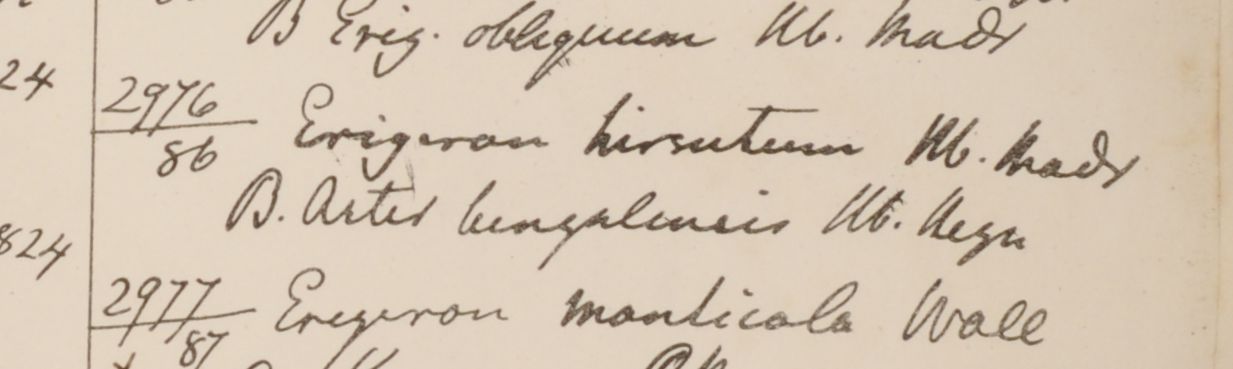 B Erig. obliquum Hb. Madr
24
2976
86 Erigeron hirsutum Hb. Madr
B. Aster bengalensis Hb. Heyn
824
2977
87 Erigeron monticola Wall